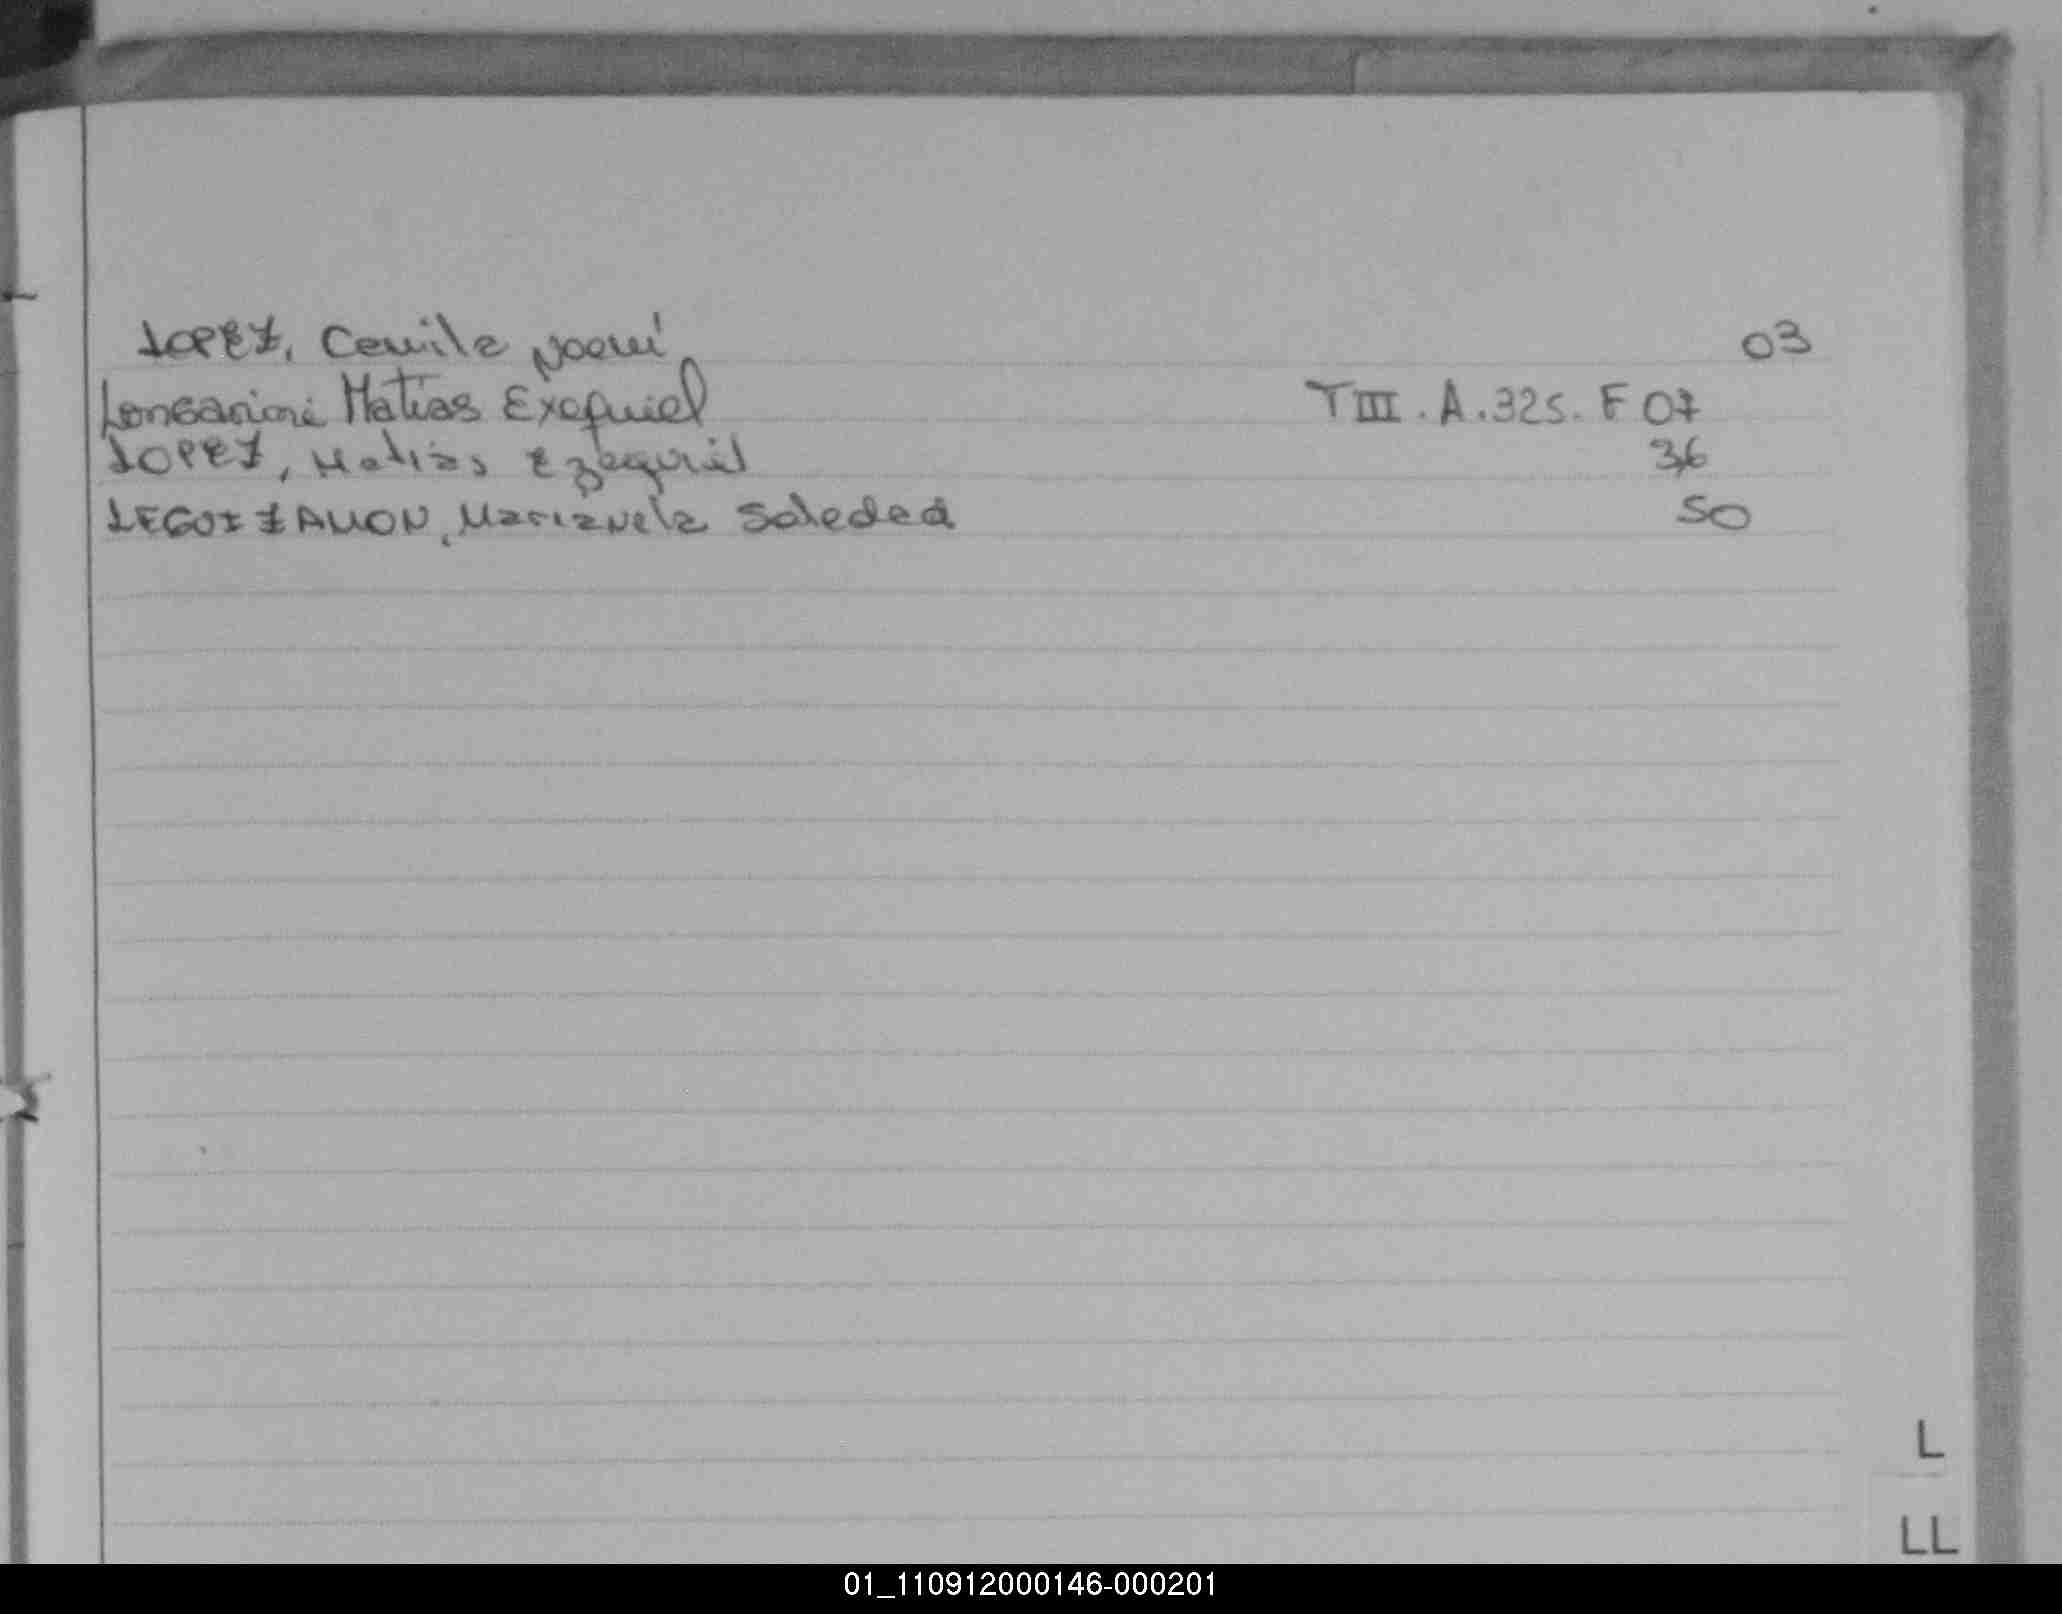 LOPEZ, Camila Noemí 03
Matías Exequiel TIII. A.325. F 07
LOPEZ, Matías Ezequiel 36
LEGUIZAMON, Marianela Soledad 50
L
LL
01_110912000146-000201